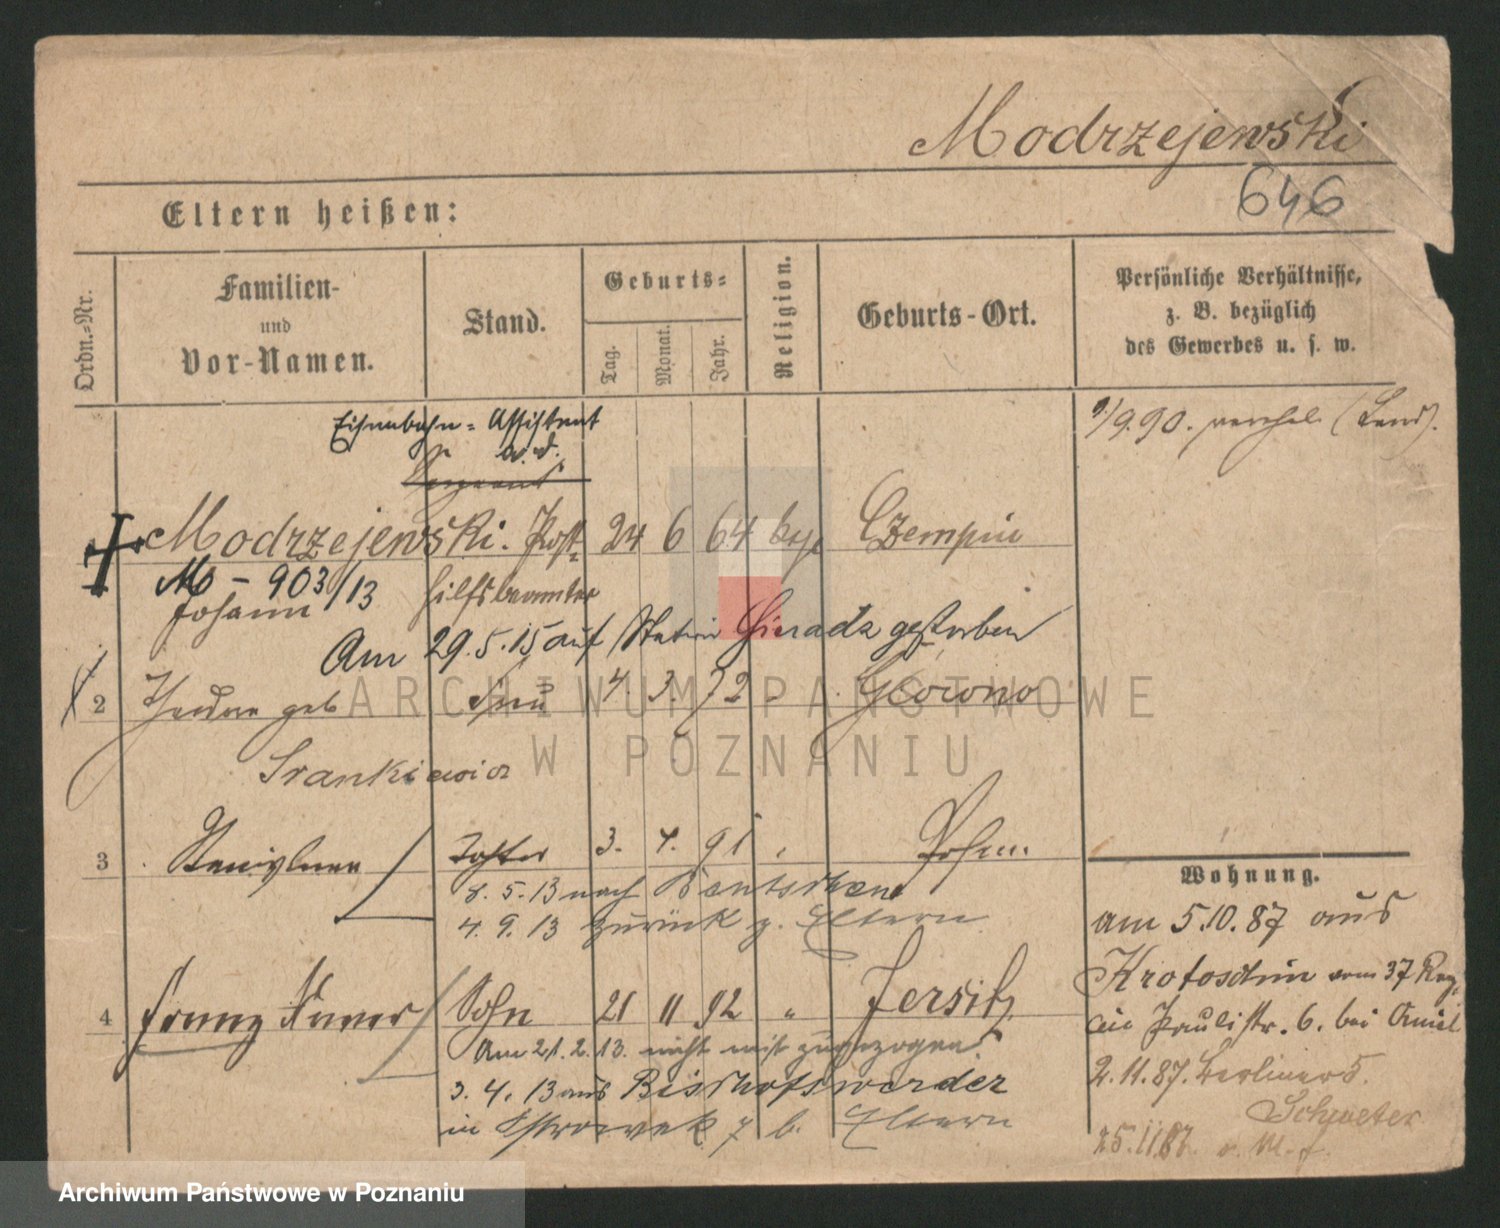 Modrzejewski
646
Eltern heißen:
Ordn.=Nr.
Familien-
und
Vor-Namen.
Stand.
Geburts=
Tag.
Monat.
Jahr.
Religion.
Geburts-Ort.
Persönliche Verhältnisse,
z. B. bezüglich
des Gewerbes u. s. w.
Eisenbahn= Assistent
a. d.
Sergeant
1/9.90. (Land).
Modrzejewski. Post- 24 6 64 Czempin
M - 903/13 hilfsbeamter
Johann
Am 29.5.15 auf Station Sieradz gestorben
2 geb Frau 4. 3. 72 - Gorono
3 Tochter 3. 4. 91 Posen.
8. 5. 13 nach Bentschen
4. 9. 13 zurück z. Eltern
4 Franz Xaver Sohn 21 11 92 " Jersitz
Am 21. 2. 13. nicht mit zugezogen.
3. 4. 13 aus Bischofswerder
in 7 b. Eltern
Wohnung.
am 5.10.87 aus
Krotoschin vom 37 Reg.
Paulistr. 6. bei
2.11.87. Berliner 5.
25.11.87.
ARCHIWUM PAŃSTWOWE
W POZNANIU
Archiwum Państwowe w Poznaniu